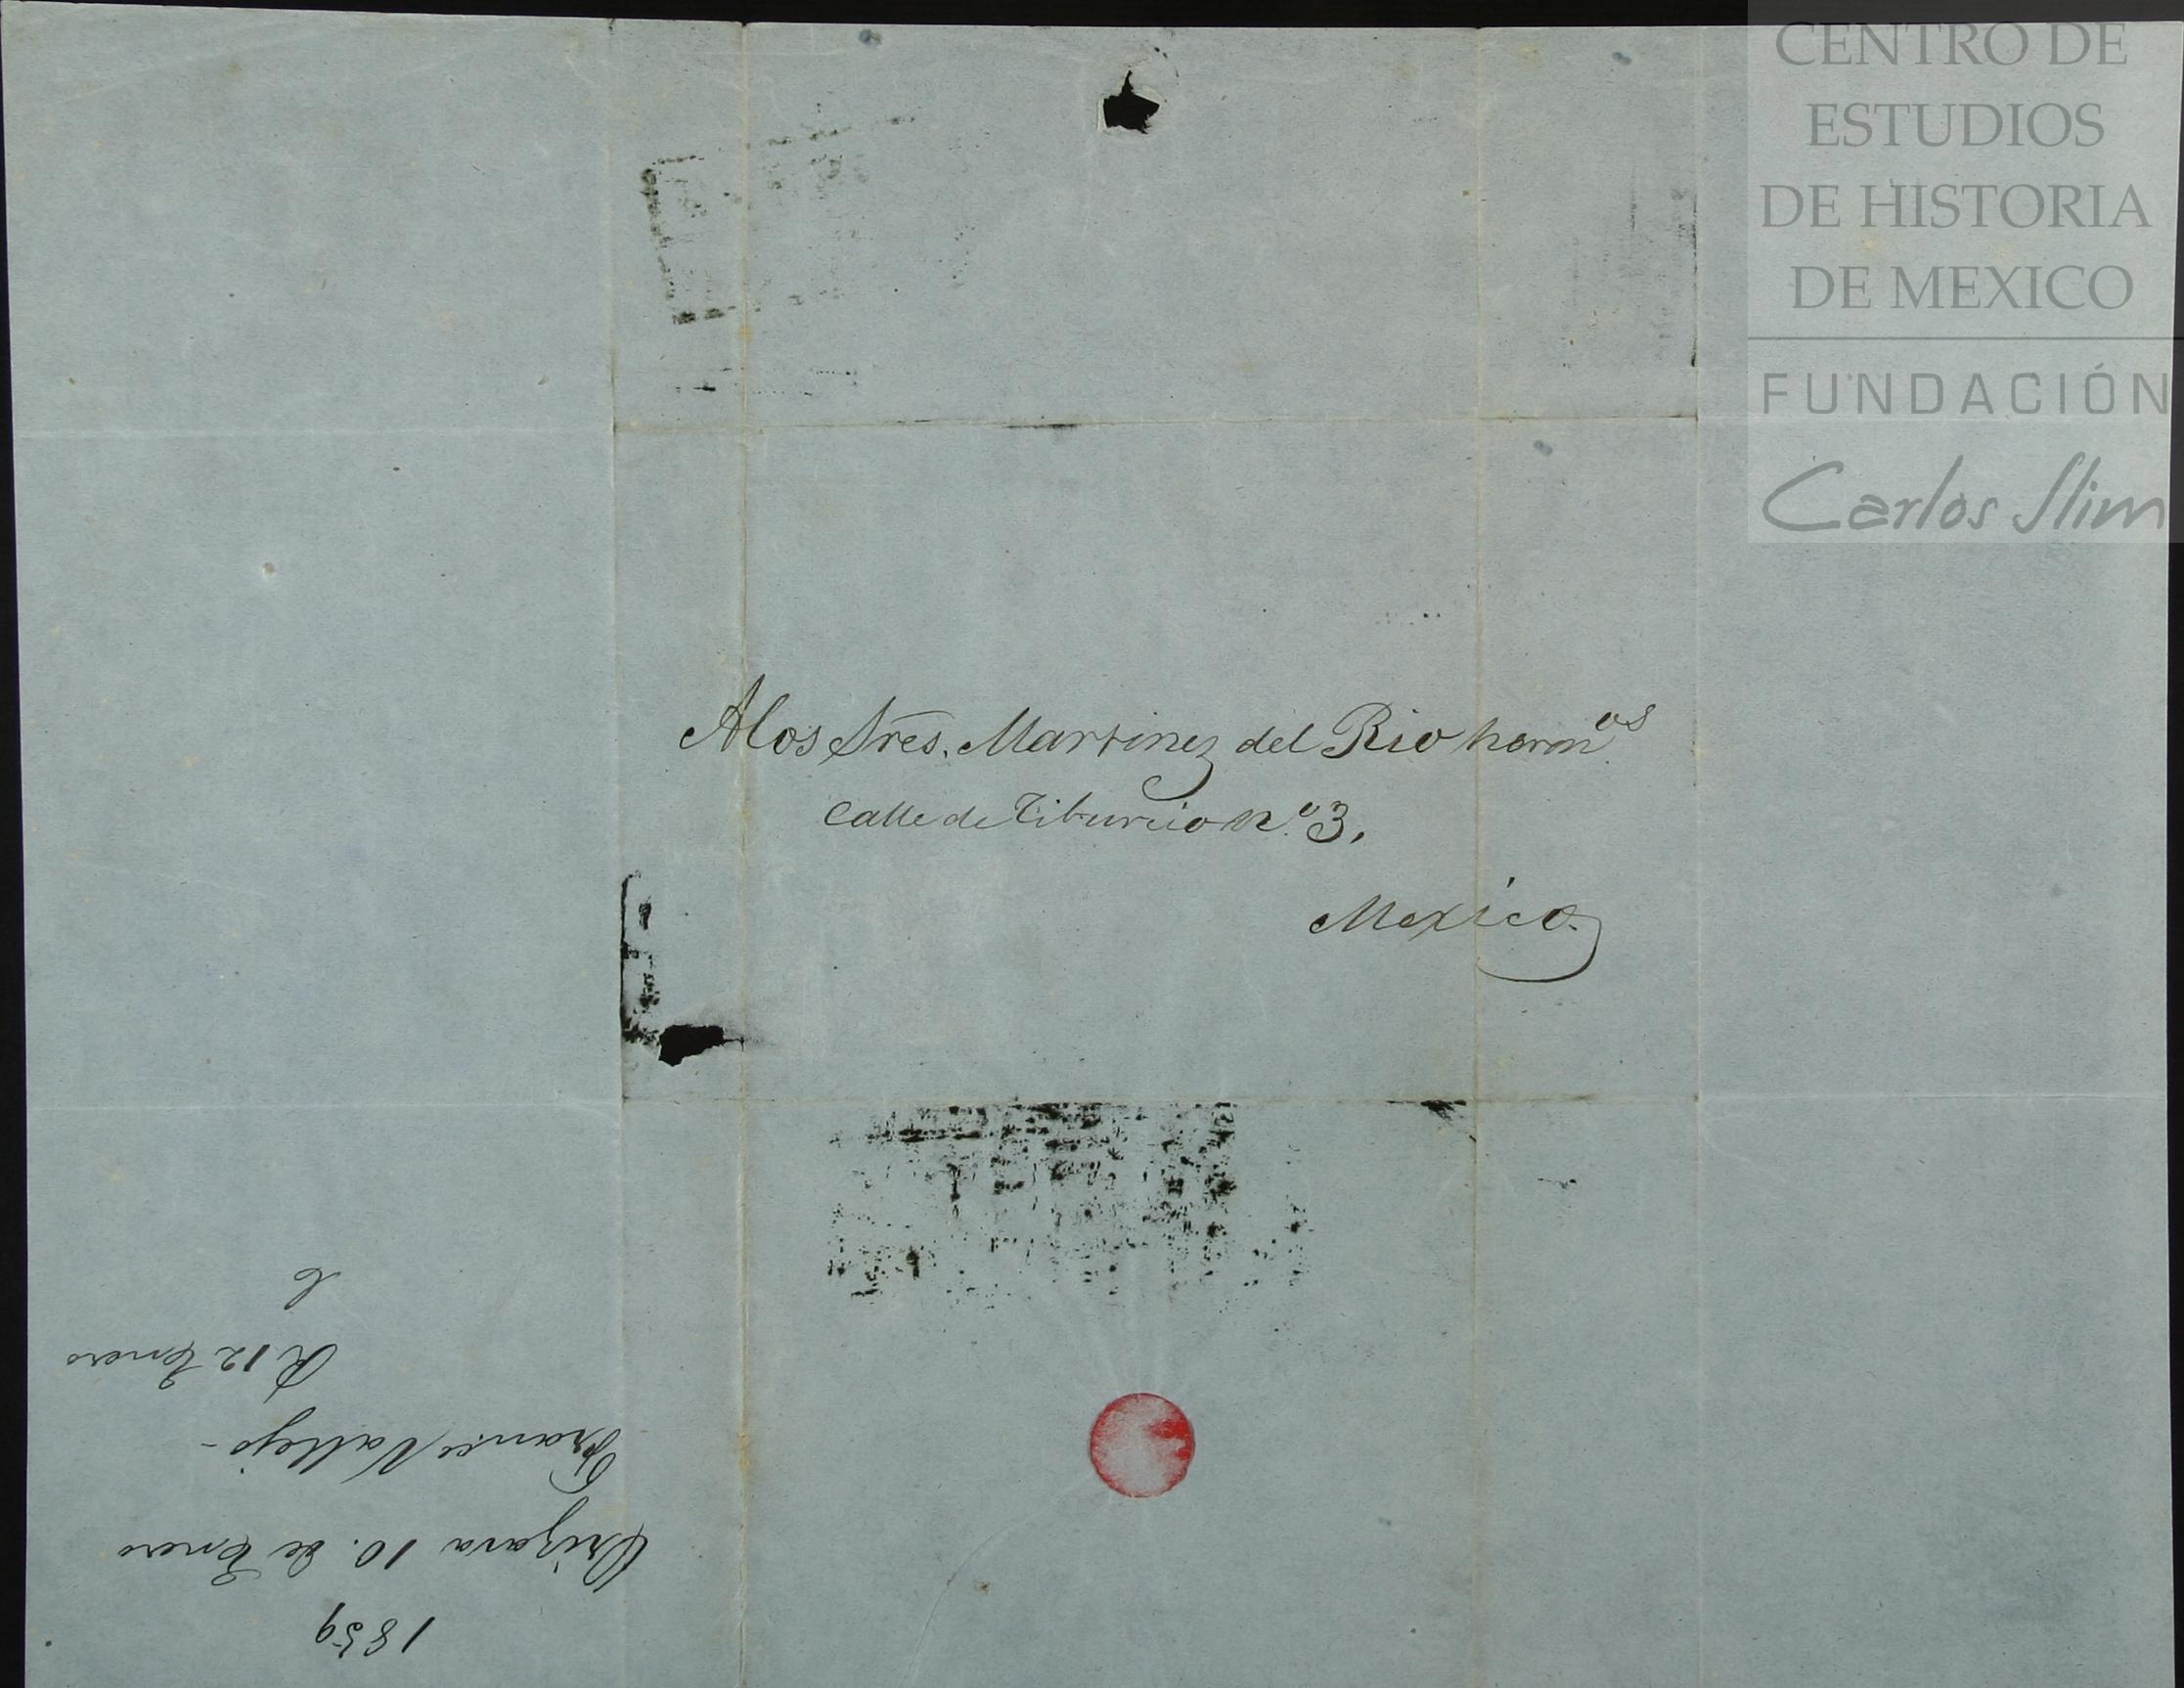 CENTRO DE
ESTUDIOS
DE HISTORIA
DE MEXICO
FUNDACIÓN
Carlos Slim
A los Sres. Martinez del Rio herm.os
Calle de Tiburcio N.o 3.
Mexico.
1859
Orizava 10. de Enero
Franco Vallejo -
R 12 Enero